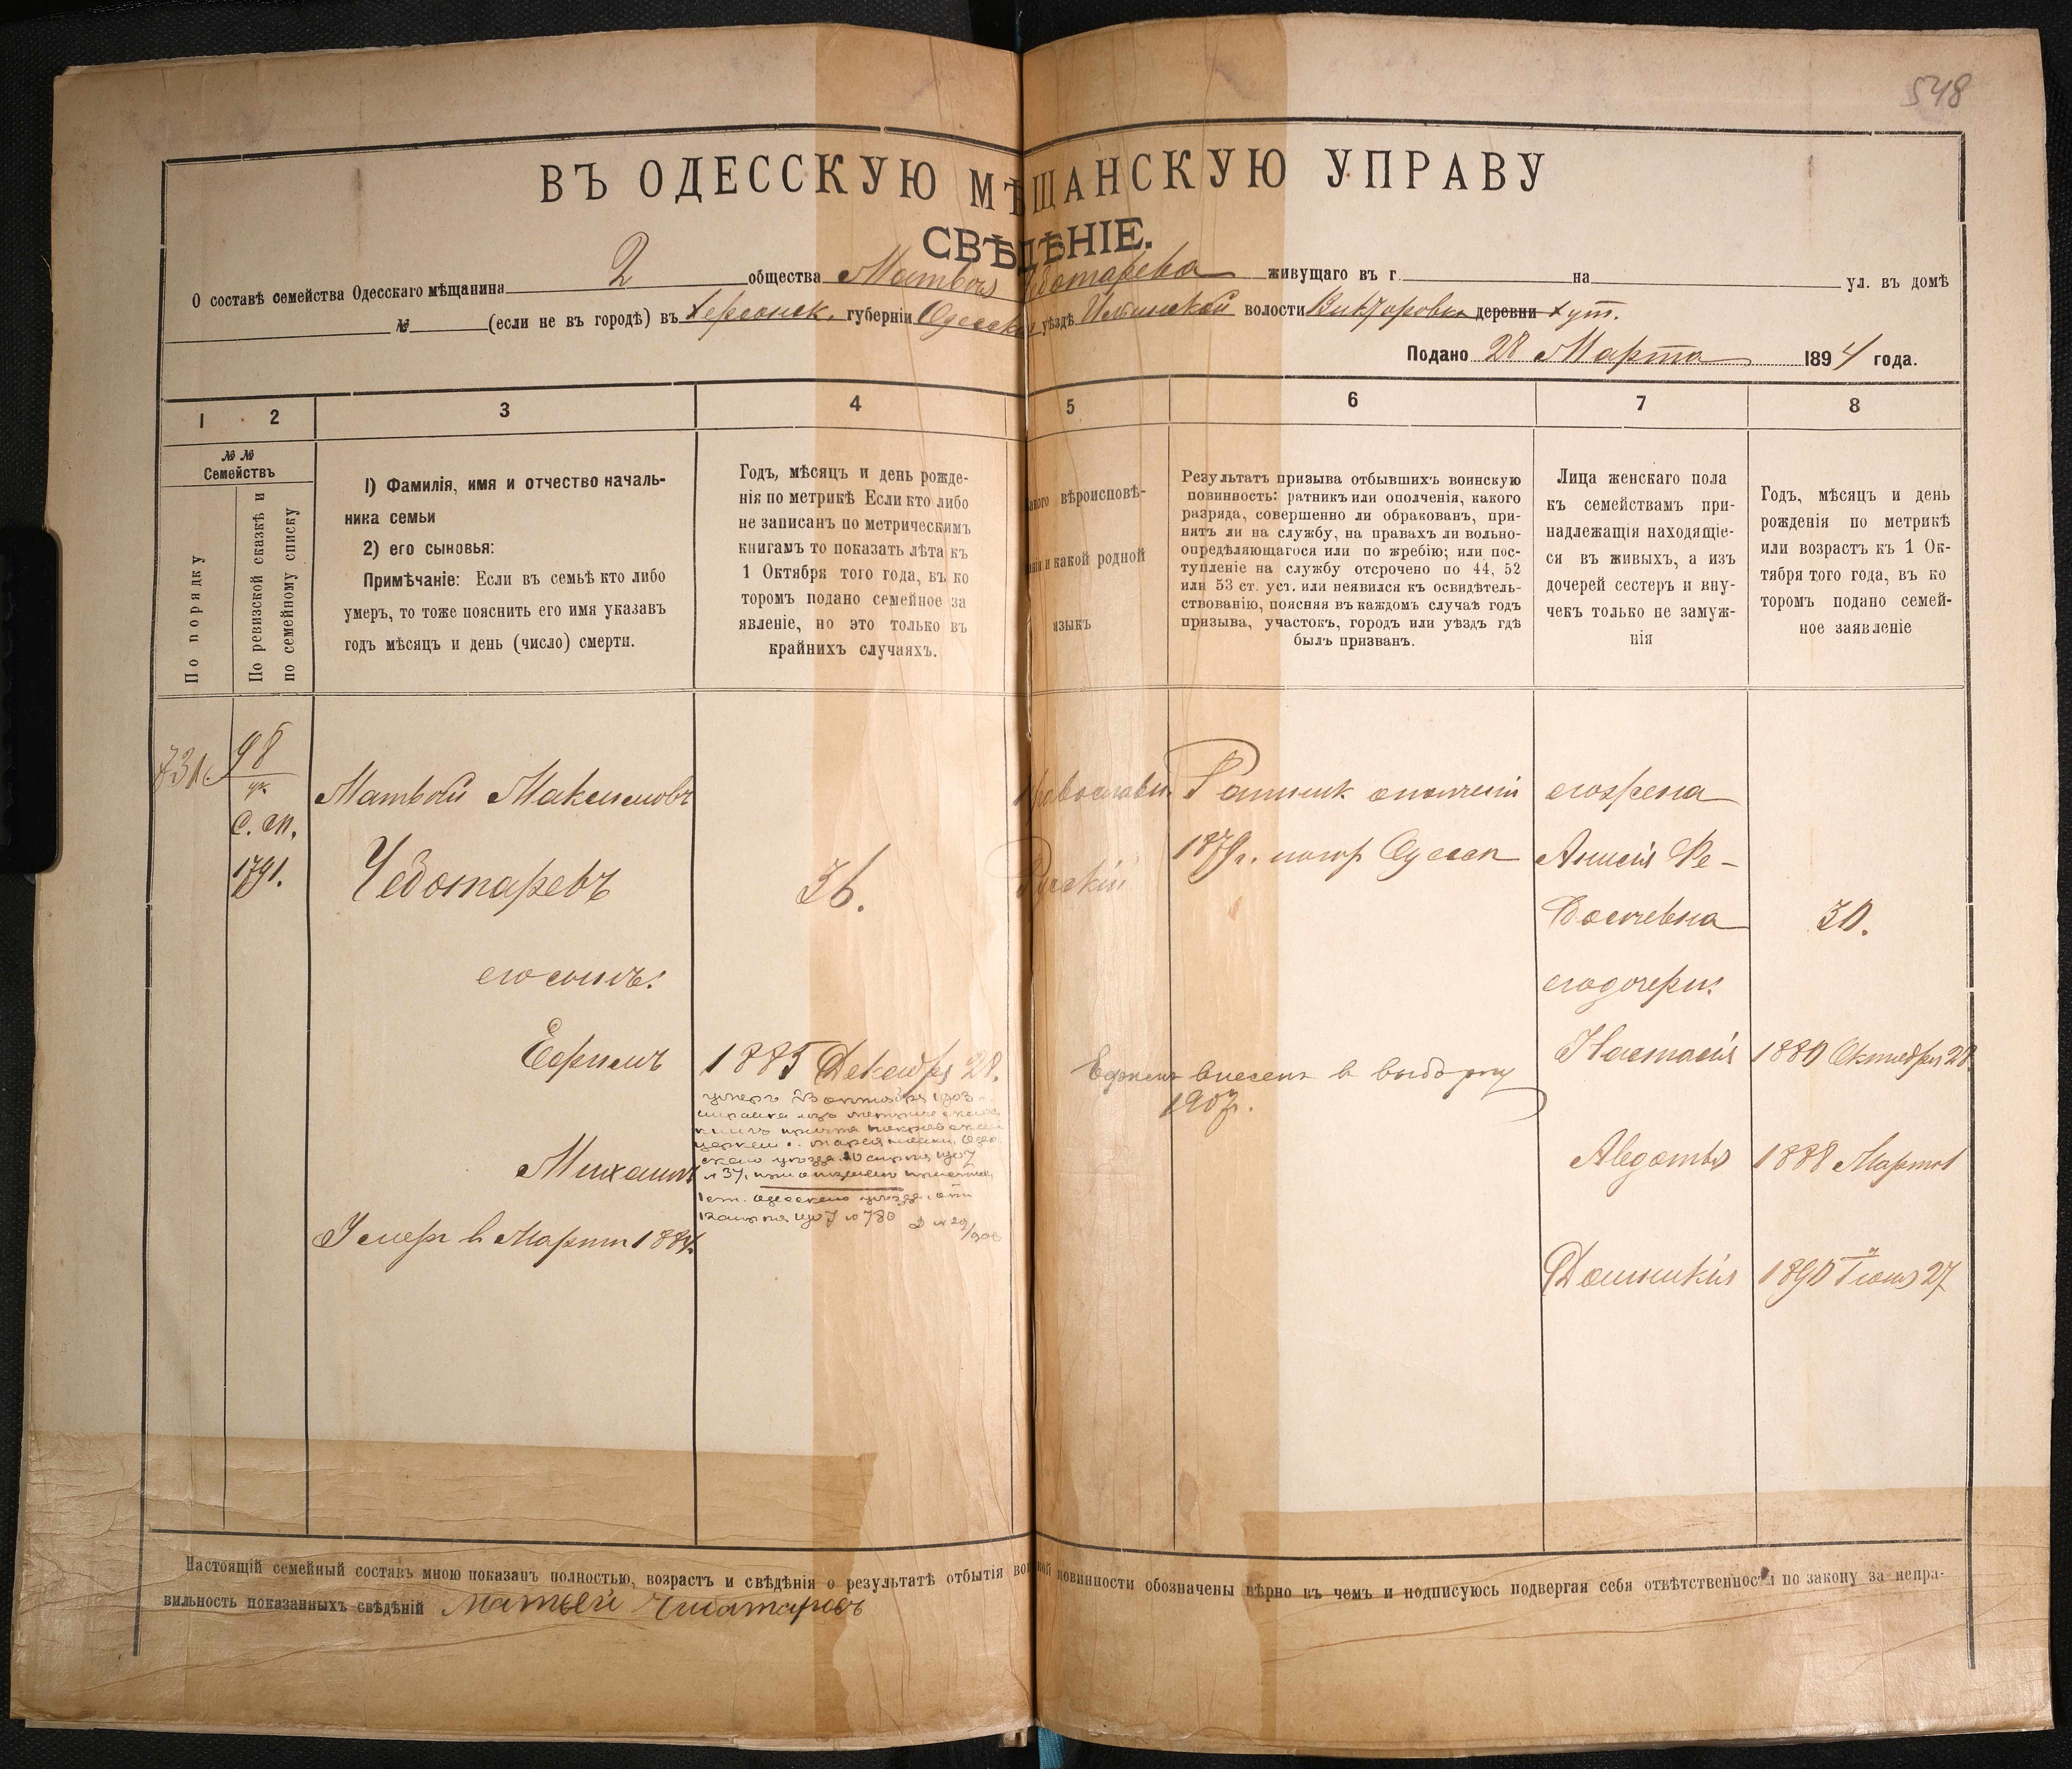 548
ВЪ ОДЕССКУЮ МѢЩАНСКУЮ УПРАВУ
СВѢДѢНІЕ.
О составѣ семейства Одесскаго мѣщанина 2 общества Матвѣя Чеботарева живущаго въ г. на ул. въ домѣ
№ (если не въ городѣ) въ Херсонск. губерніи Одесском уѣздѣ Ильинской волости деревни хут.
Подано 28 Марта 1894 года.
1 2 3 4 5 6 7 8
№ №
Семействъ
По порядку
По ревизской сказкѣ и
по семейному списку
1) Фамилія, имя и отчество началь-
ника семьи
2) его сыновья:
Примѣчаніе: Если въ семьѣ кто либо
умеръ, то тоже пояснить его имя указавъ
годъ мѣсяцъ и день (число) смерти.
Годъ, мѣсяцъ и день рожде-
нія по метрикѣ Если кто либо
не записанъ по метрическимъ
книгамъ то показать лѣта къ
1 Октября того года, въ ко
торомъ подано семейное за
явленіе, но это только въ
крайнихъ случаяхъ.
вѣроисповѣ-
и какой родной
языкъ
Результатъ призыва отбывшихъ воинскую
повинность: ратникъ или ополченія, какого
разряда, совершенно ли обракованъ, при-
нятъ ли на службу, на правахъ ли вольно-
опредѣляющагося или по жребію; или пос-
тупленіе на службу отсрочено по 44, 52
или 53 ст. уст. или неявился къ освидѣтель-
ствованію, поясняя въ каждомъ случаѣ годъ
призыва, участокъ, городъ или уѣздъ гдѣ
былъ призванъ.
Лица женскаго пола
къ семействамъ при-
надлежащія находящіе-
ся въ живыхъ, а изъ
дочерей сестеръ и вну-
чекъ только не замуж-
нія
Годъ, мѣсяцъ и день
рожденія по метрикѣ
или возрастъ къ 1 Ок-
тября того года, въ ко
торомъ подано семей-
ное заявленіе
98
с. сп.
1791.
Матвѣй Максимовъ
Чеботаревъ
36.
Православн.
Русскій
Ратник ополченія
1879 г.
его жена
Анисія Ѳе-
досѣевна
30.
его сынъ:
его дочери:
Ефимъ
1885 Декабря 28.
умеръ 23 октября 1903
Ефим внесен в выборку
1907.
Настасія
1880 Октября 28.
Михаилъ
Умеръ в Марте 1884.
Авдотья
1888 Марта 1
Домникія
1890 Іюня 27
Настоящій семейный составъ мною показанъ полностью, возрастъ и свѣдѣнія о результатѣ отбытія воинской повинности обозначены вѣрно въ чемъ и подписуюсь подвергая себя отвѣтственности по закону за непра-
вильность показанныхъ свѣдѣній Матвей Чиботаровъ